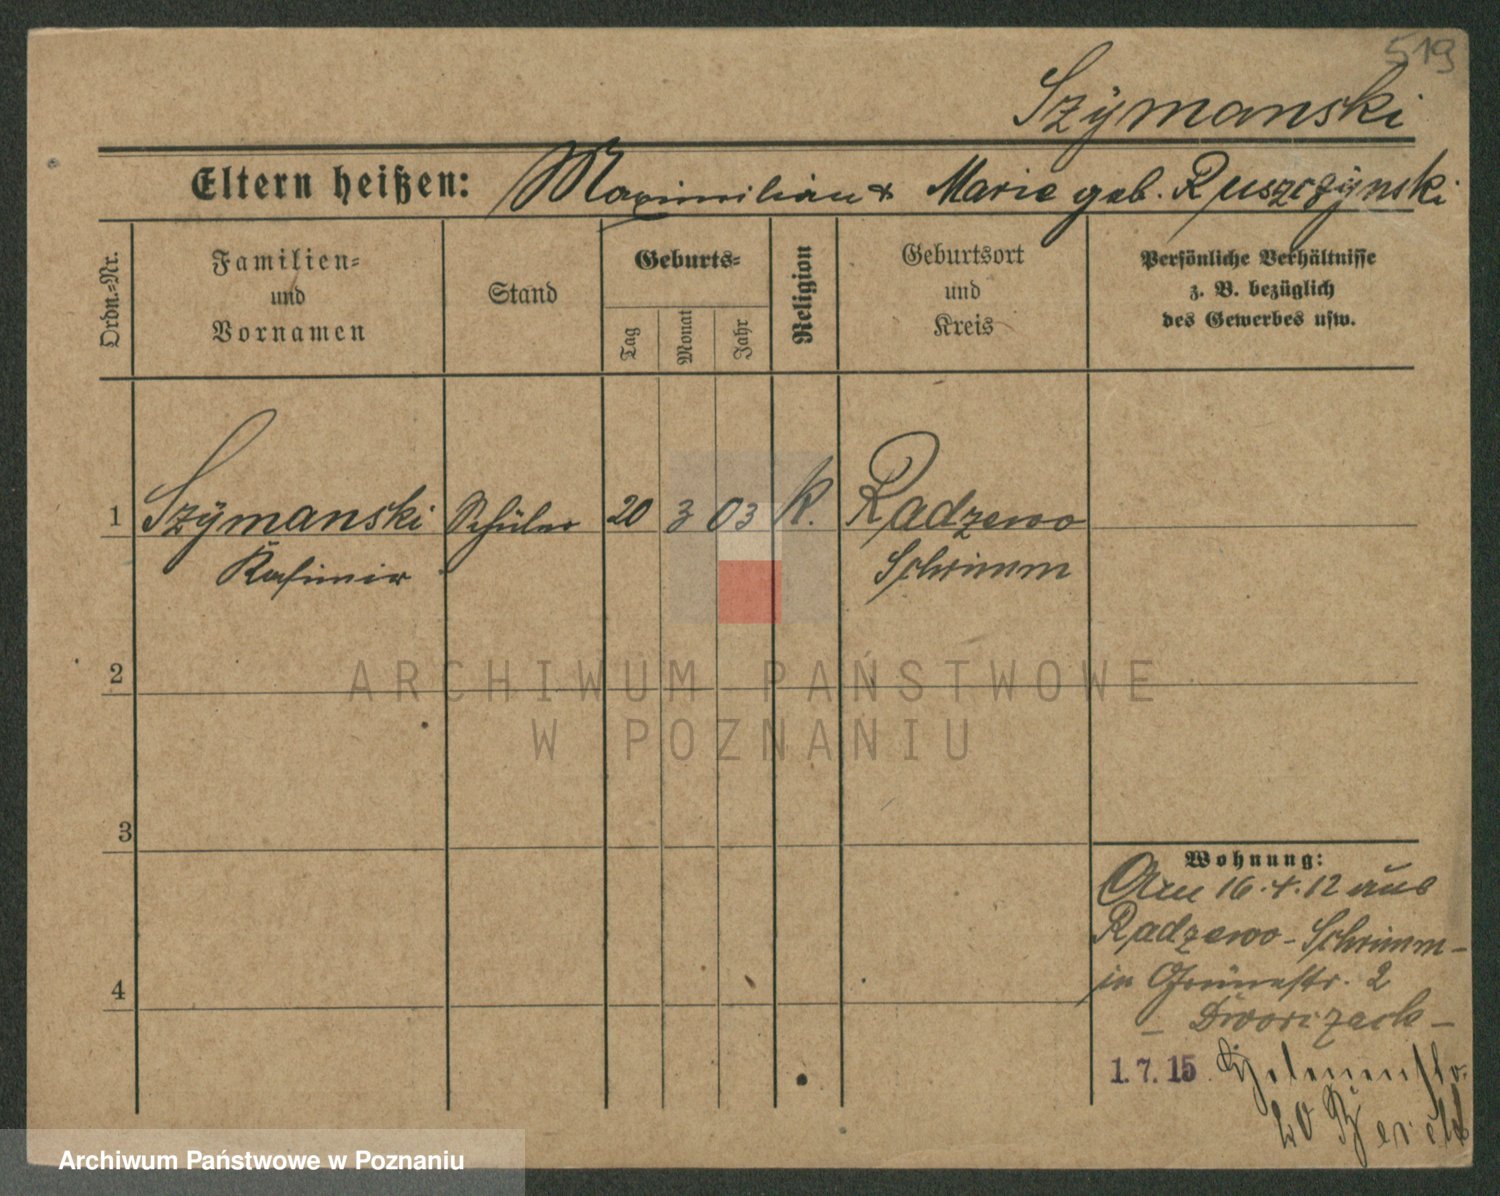 519
Szÿmanski
Eltern heißen: Maximilian & Marie geb. Ruszczÿnski
Ordn.=Nr.
Familien=
und
Vornamen
Stand
Geburts=
Tag
Monat
Jahr
Religion
Geburtsort
und
Kreis
Persönliche Verhältnisse
z. B. bezüglich
des Gewerbes usw.
1 Szÿmanski Schüler 20 3 03 K. Radzewo
Kasimir Schrimm
2
3
4
Wohnung:
Am 16.4.12 aus
Radzewo - Schrimm -
in Grünestr. 2
- Dworczack -
1. 7. 15
20
ARCHIWUM PAŃSTWOWE
W POZNANIU
Archiwum Państwowe w Poznaniu